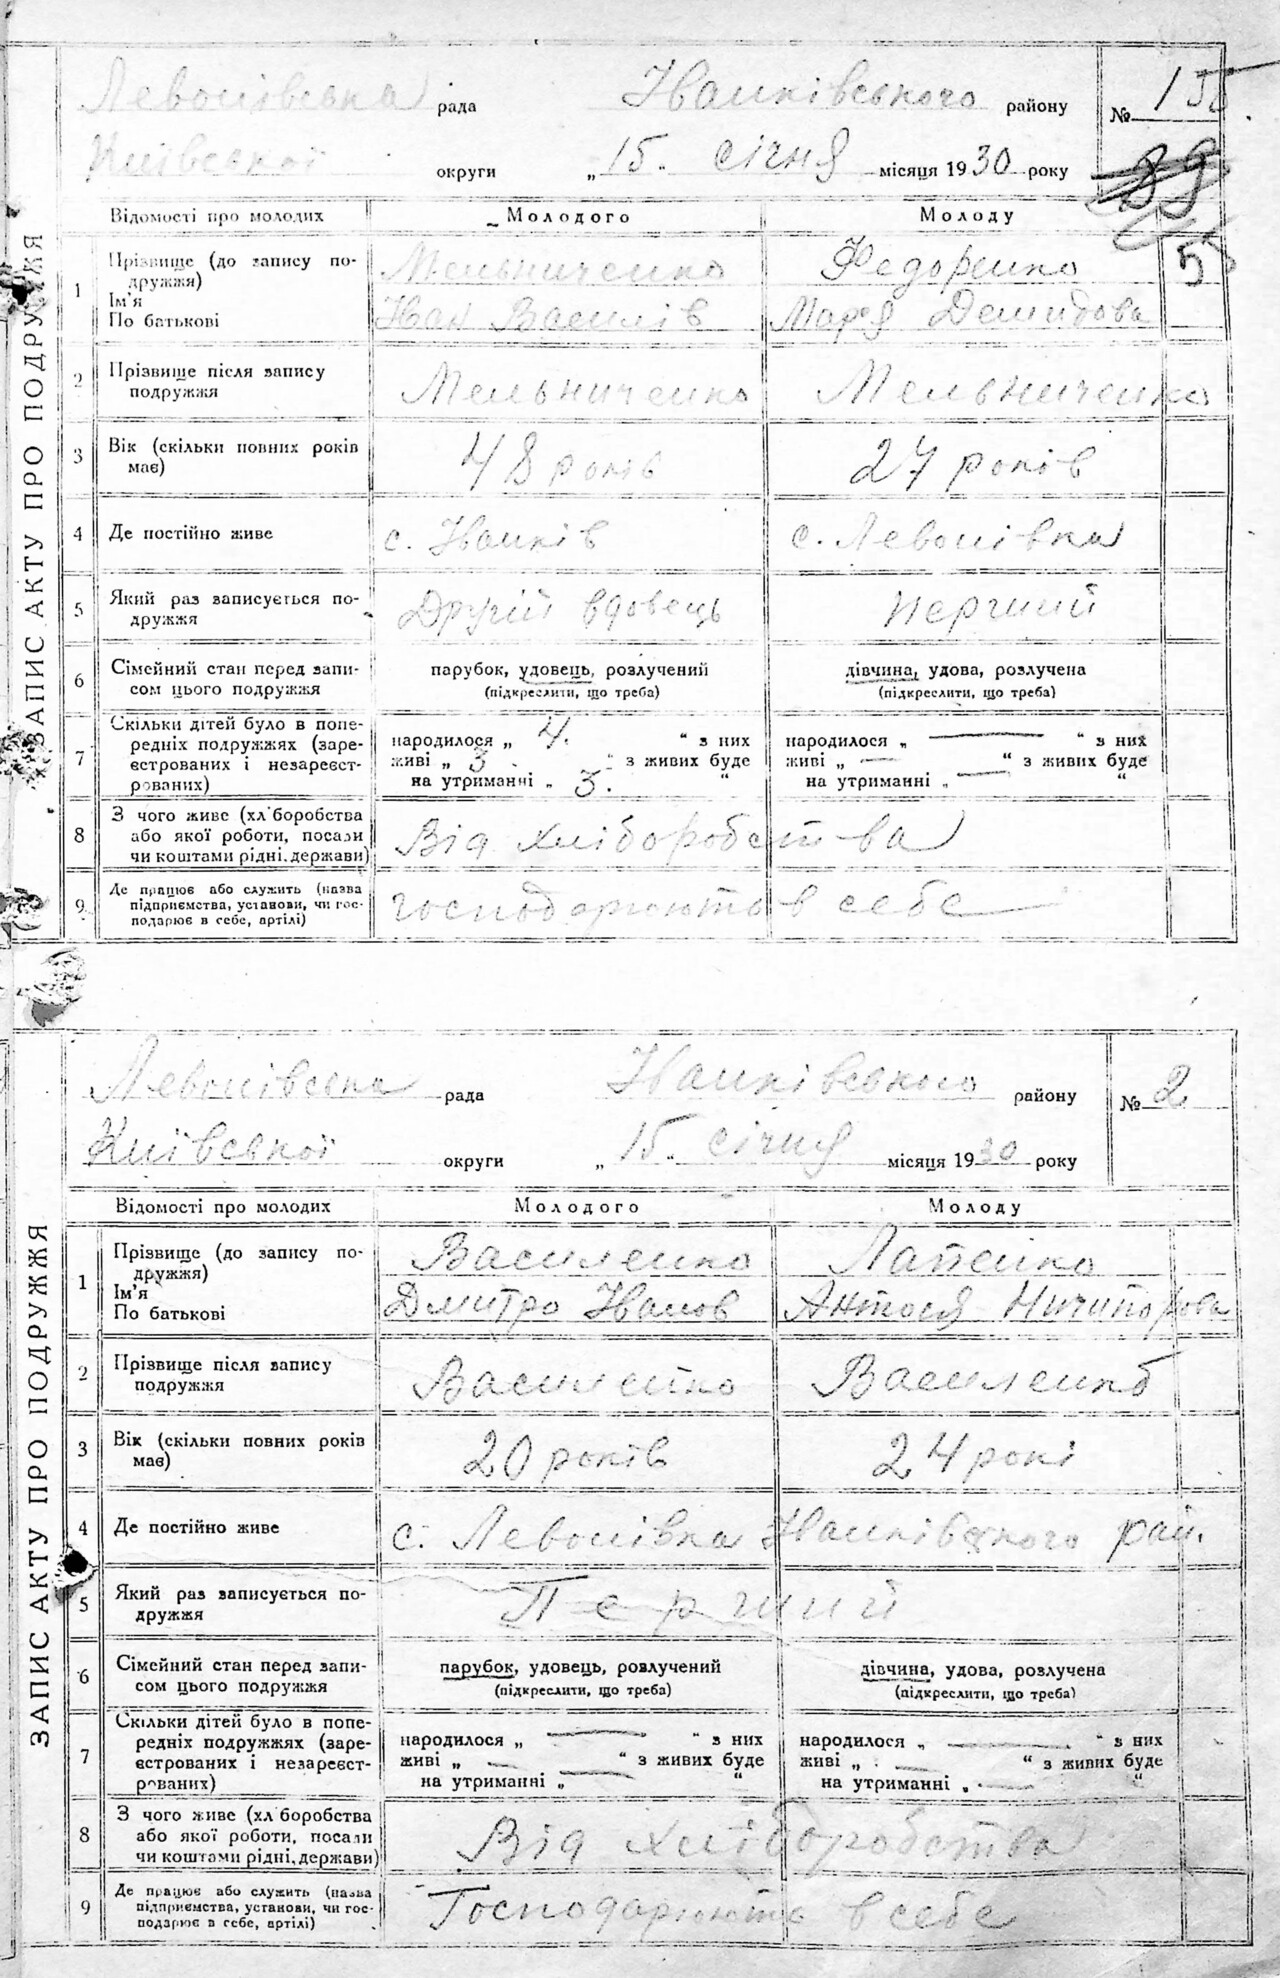 Левонівська рада Іванківського району № 1
Київської округи „ 15. січня місяця 1930 року
89
55
ЗАПИС АКТУ ПРО ПОДРУЖЖЯ
Відомості про молодих Молодого Молоду
1 Прізвище (до запису по-
дружжя) Мельниченко Федоренко
Ім'я
По батькові Іван Василів Марія Демидова
2 Прізвище після запису
подружжя Мельниченко Мельниченко
3 Вік (скільки повних років
має) 48 років 27 років
4 Де постійно живе с. Іванків с. Левонівка
5 Який раз записується по-
дружжя Другій вдовець Перчий
6 Сімейний стан перед запи- парубок, удовець, розлучений дівчина, удова, розлучена
сом цього подружжя (підкреслити, що треба) (підкреслити, що треба)
7 Скільки дітей було в попе-
редніх подружжях (заре- народилося „ 4. “ з них народилося „ — “ з них
єстрованих і незареєст- живі „ 3 “ з живих буде живі „ — “ з живих буде
рованих) на утриманні „ 3. “ на утриманні „ — “
8 З чого живе (хліборобства
або якої роботи, посади Від хліборобства
чи коштами рідні, держави)
9 Де працює або служить (назва
підприємства, установи, чи гос- господарюють в себе
подарює в себе, артілі)
Левонівська рада Іванківського району № 2
Київської округи „ 15. січня місяця 1930 року
ЗАПИС АКТУ ПРО ПОДРУЖЖЯ
Відомості про молодих Молодого Молоду
1 Прізвище (до запису по-
дружжя) Василенко Лапенко
Ім'я
По батькові Дмитро Іванов Антося Ничипорова
2 Прізвище після запису
подружжя Василенко Василенко
3 Вік (скільки повних років
має) 20 років 24 рокі
4 Де постійно живе с. Левонівка Іванківского рай.
5 Який раз записується по-
дружжя Перчий
6 Сімейний стан перед запи- парубок, удовець, розлучений дівчина, удова, розлучена
сом цього подружжя (підкреслити, що треба) (підкреслити, що треба)
7 Скільки дітей було в попе-
редніх подружжях (заре- народилося „ — “ з них народилося „ — “ з них
єстрованих і незареєст- живі „ — “ з живих буде живі „ — “ з живих буде
рованих) на утриманні „ — “ на утриманні „ — “
8 З чого живе (хліборобства
або якої роботи, посади Від хліборобства
чи коштами рідні, держави)
9 Де працює або служить (назва
підприємства, установи, чи гос- Господарюють в себе
подарює в себе, артілі)